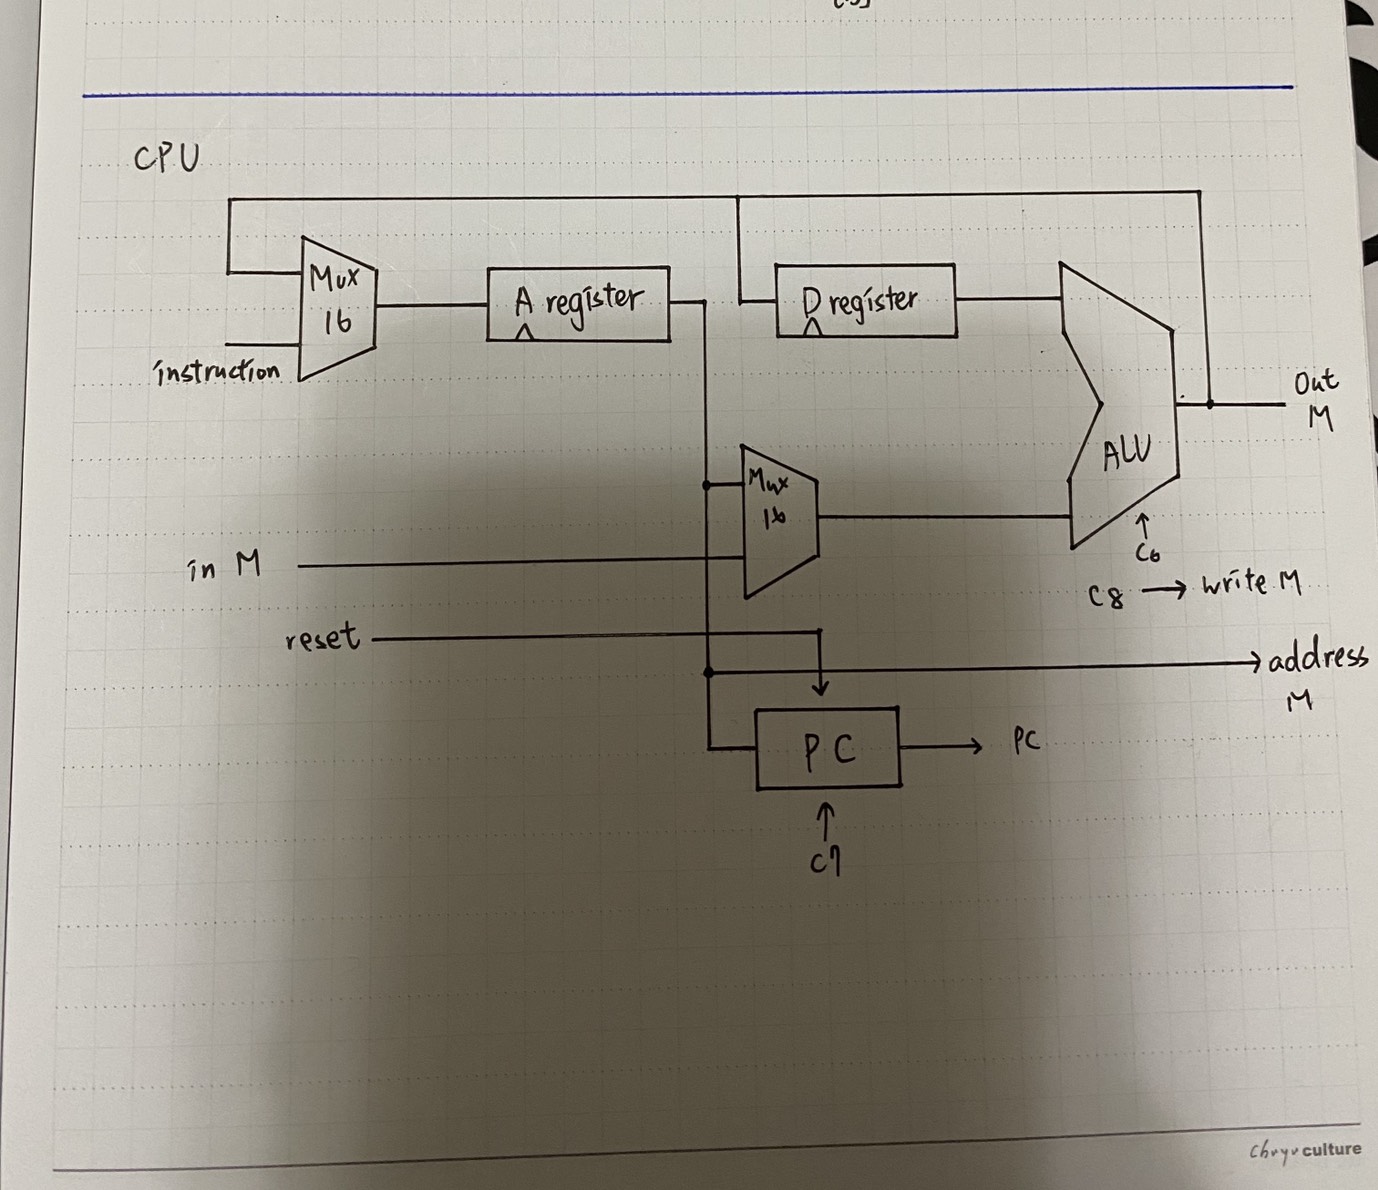 CPU
Mux
16
instruction
A register
D register
ALU
Out
M
Mux
16
in M
C6
C8 → write M
reset
address
M
PC
PC
C7
culture